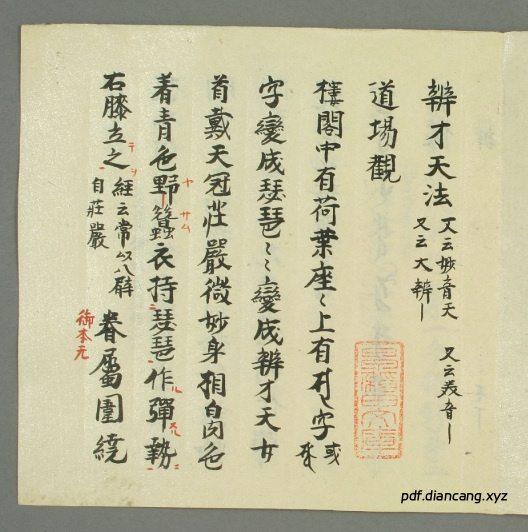 辨才天法 又云妙音天 又云大辨｜ 又云美音｜
道場觀
樓閣中有荷葉座〻上有 字或
字變成琵琶〻〻變成辨才天女
首戴天冠莊嚴微妙身相白肉色
着青色野蠶衣持琵琶作彈勢
右膝立之 經云常以八臂自莊嚴 眷屬圍繞
御本元
pdf.diancang.xyz